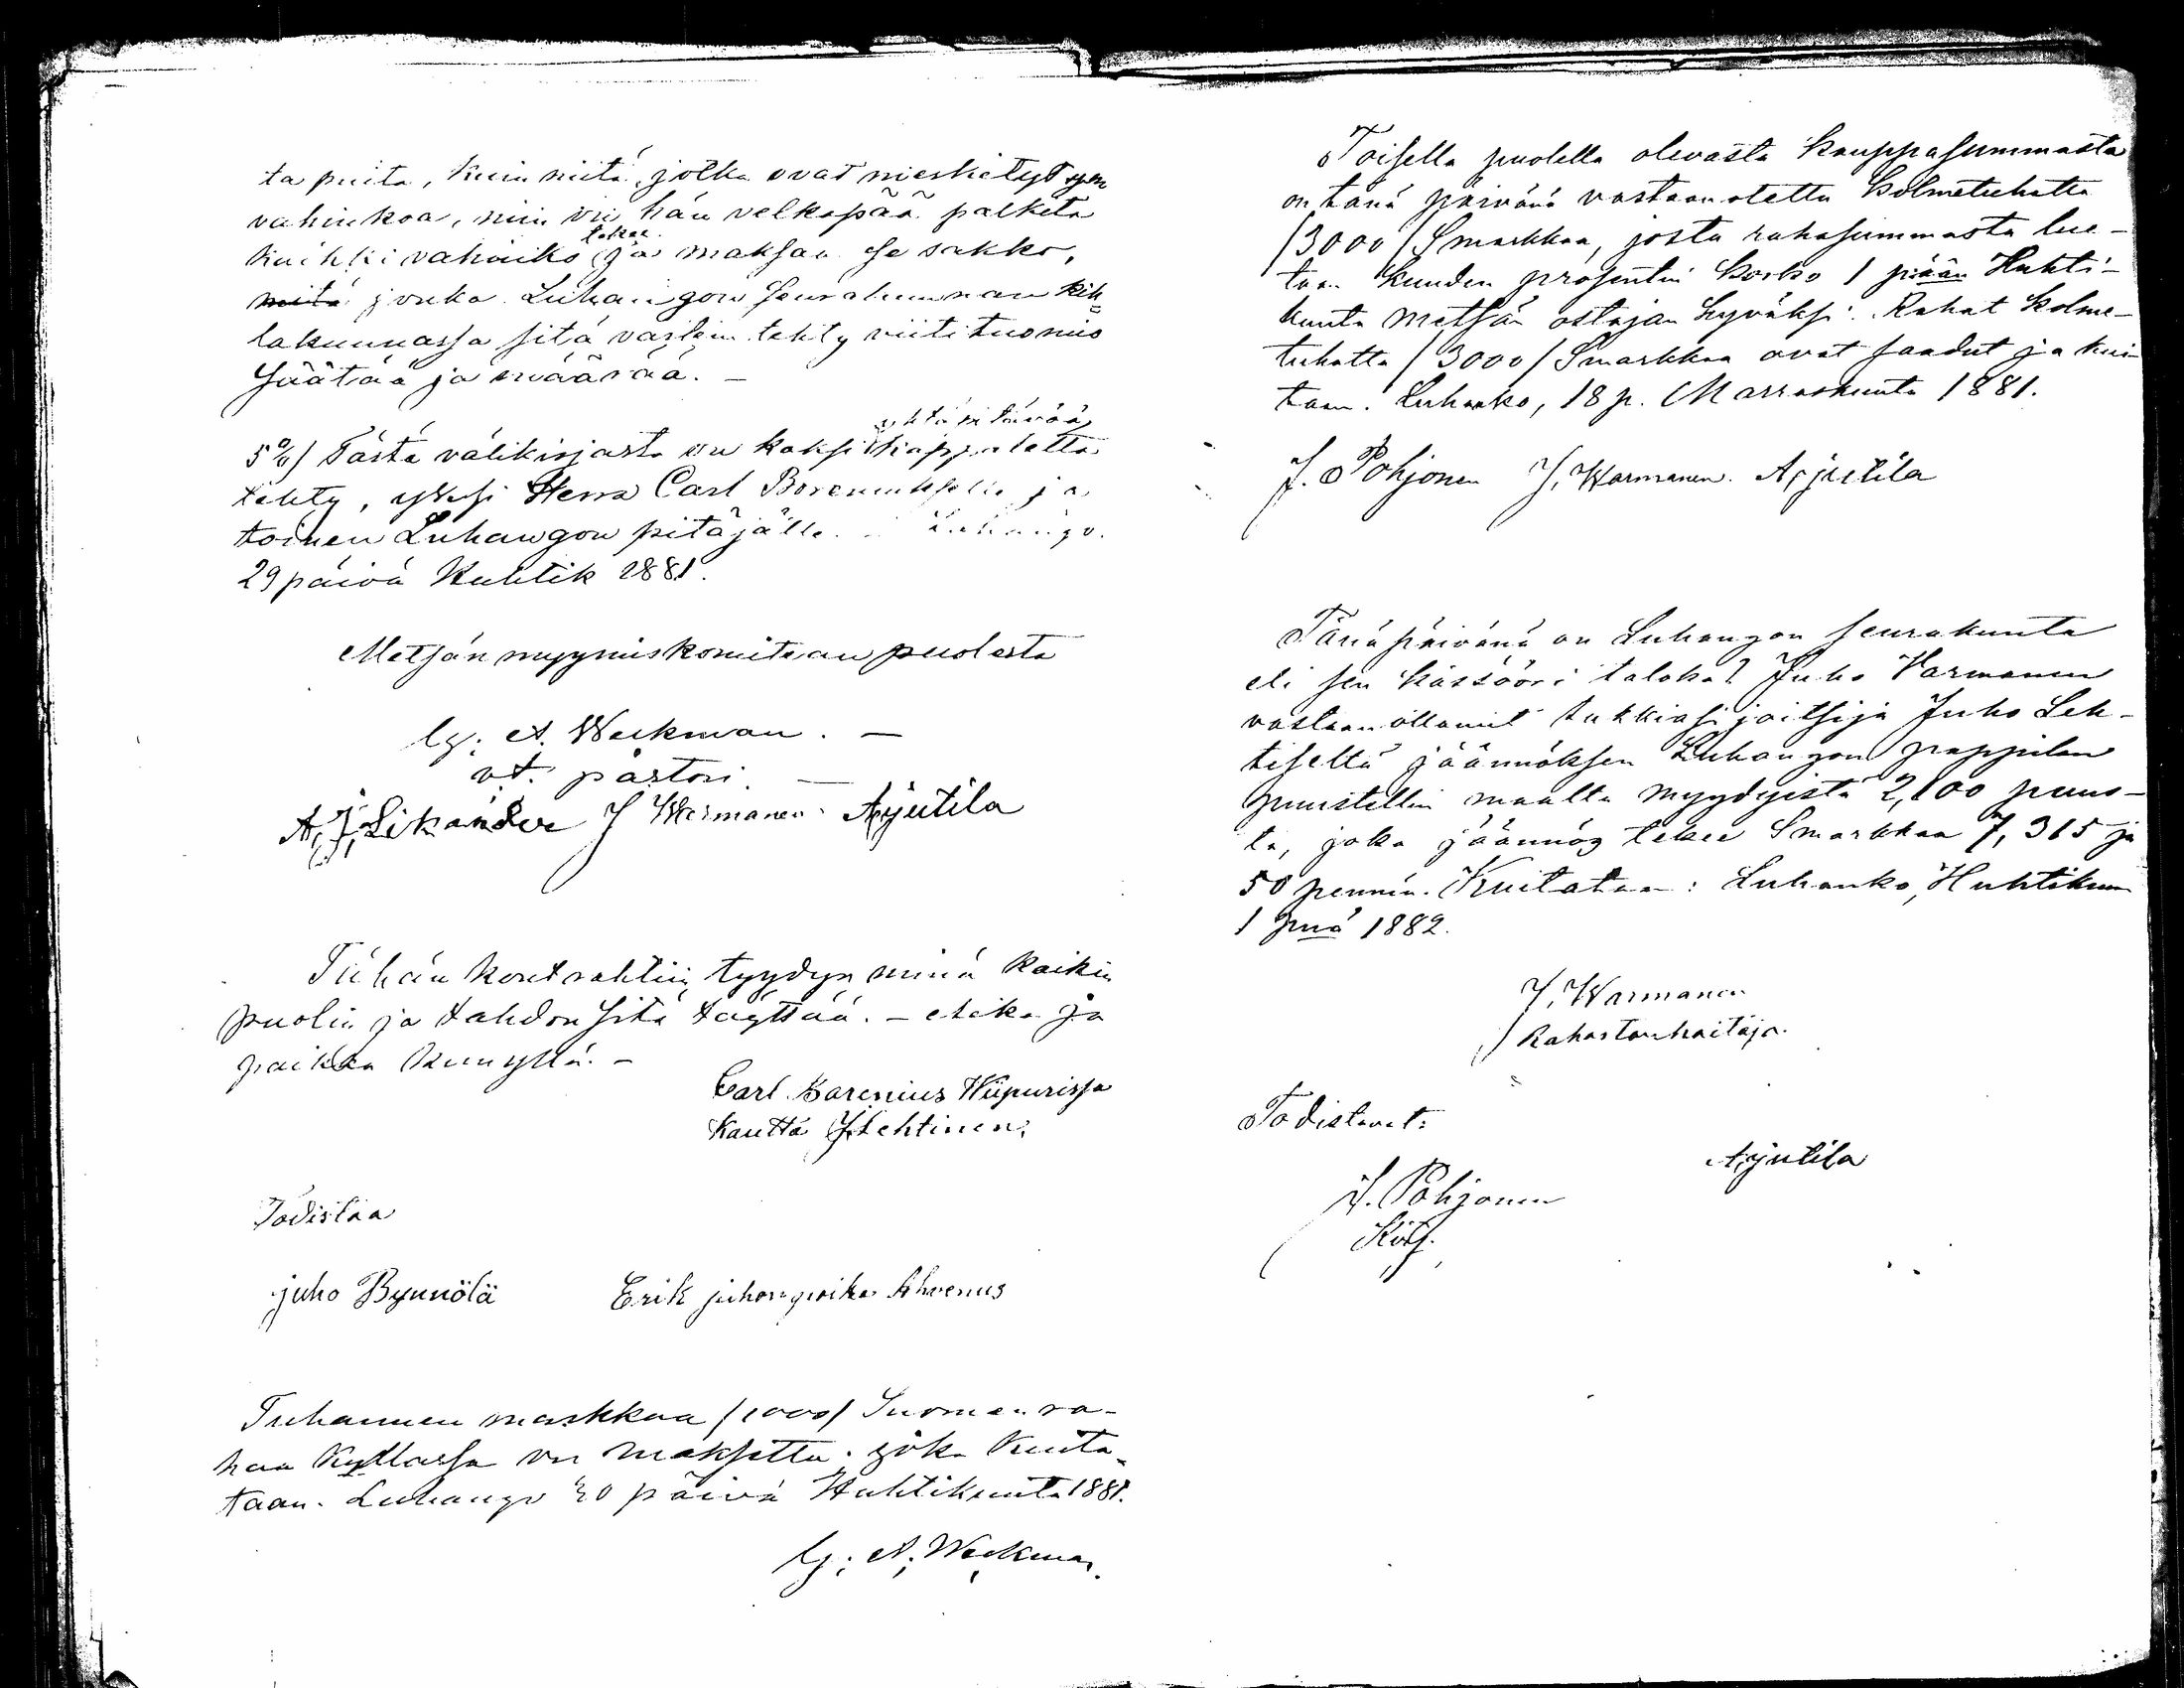 ta puita, kuin niitä, jotka ovat mieskityt
vahinkoa, niin on hän velkapää palkita
kaikki vahinko takas ja maksaa se sakko,
niitä jonka Luhangon seurakunnan kih-
lakunnassa sitä varten tehty viiti tuomio
säätää ja määrää. —
5%) Tästä välikirjasta on kaksi yhtä pitävää kappaletta
tehty, yksi Herra Carl Boreniukselle ja
toinen Luhangon pitäjälle. Luhango.
29 päivä Huhtik 1881.
Metsän myymiskomitean puolesta
A. Weckman. —
vt. pastori. —
A. J. Sikander J Warmanen. A, jutila
Tähän kontrahtiin tyydyn minä kaikin
puolin ja tahdon sitä täyttää. — Aika ja
paikka kun yllä. —
Carl Borenius Wiipurissa
Kautta J. Lehtinen.
Todistaa
juho Bynnölä Erik juhonpoika Ahvenus
Tuhannen markkaa /1000/ Suomen ra-
haa Kullassa on maksettu. joka kuita-
taan. Luhango 30 päivä Huhtikuuta 1881.
A; Weckman.
Toisella puolella olevasta kauppasummasta
on tänä päivänä vastaanotettu kolmetuhatta
/3000/ Smarkkaa, josta rahasummasta lue-
taan kuuden prosentin korko 1 pään Huhti-
kuuta metsän ostajan hyväksi. Rahat kolme-
tuhatta /3000/ Smarkkaa ovat saadut ja kui-
taan. Luhanko, 18 p. Marraskuuta 1881.
J. Pohjonen J, Warmanen. A, jutila
Tänäpäivänä on Luhangon seurakunta
eli sen kässööri talokas Juho Varmanen
vastaanottanut tukkiasijoitsija Juho Leh-
tiseltä jäännöksen Luhangon pappilan
puustellin maalta myydyistä 2,100 puus-
ta, joka jäännös tekee Smarkkaa 7,315 ja
50 penniä. Kuitataan: Luhanko, Huhtikuun
1 pnä 1882.
J, Warmanen
Rahastonhoitaja.
Todistavat:
A, jutila
J. Pohjonen